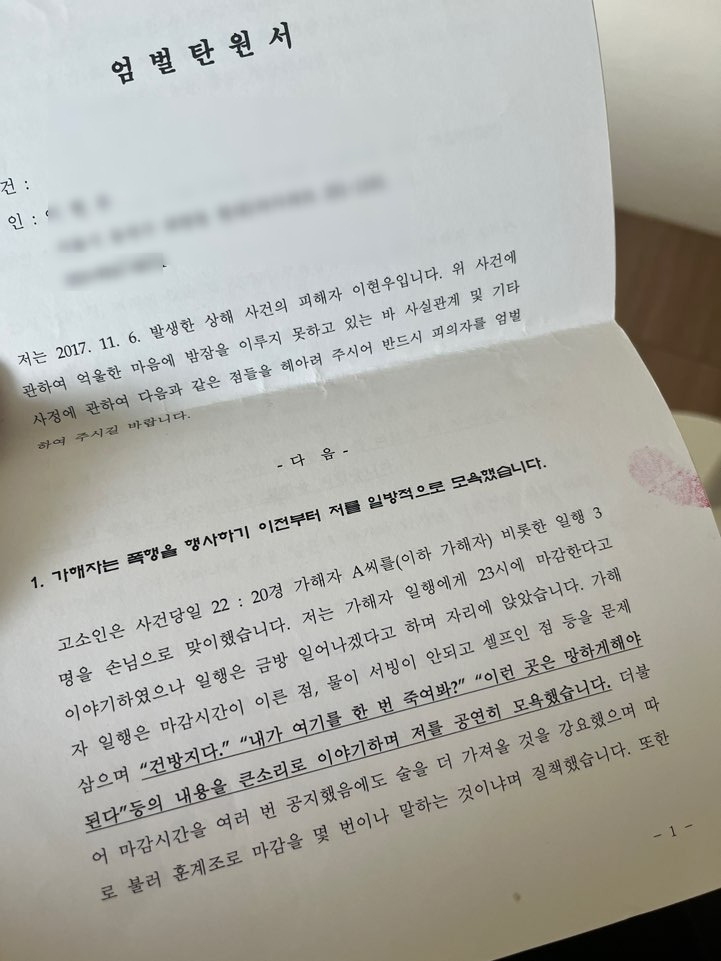 엄 벌 탄 원 서
건 :
인 :
저는 2017. 11. 6. 발생한 상해 사건의 피해자 이현우입니다. 위 사건에
관하여 억울한 마음에 밤잠을 이루지 못하고 있는 바 사실관계 및 기타
사정에 관하여 다음과 같은 점들을 헤아려 주시어 반드시 피의자를 엄벌
하여 주시길 바랍니다.
- 다 음 -
1. 가해자는 폭행을 행사하기 이전부터 저를 일방적으로 모욕했습니다.
고소인은 사건당일 22 : 20경 가해자 A씨를(이하 가해자) 비롯한 일행 3
명을 손님으로 맞이했습니다. 저는 가해자 일행에게 23시에 마감한다고
이야기하였으나 일행은 금방 일어나겠다고 하며 자리에 앉았습니다. 가해
자 일행은 마감시간이 이른 점, 물이 서빙이 안되고 셀프인 점 등을 문제
삼으며 “건방지다.” “내가 여기를 한 번 죽여봐?” “이런 곳은 망하게해야
된다”등의 내용을 큰소리로 이야기하며 저를 공연히 모욕했습니다. 더불
어 마감시간을 여러 번 공지했음에도 술을 더 가져올 것을 강요했으며 따
로 불러 훈계조로 마감을 몇 번이나 말하는 것이냐며 질책했습니다. 또한
- 1 -